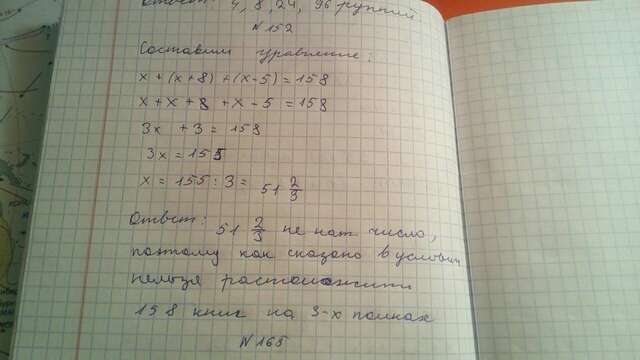 Ответ: 4, 8, 24, 96 рупий
N 152
Составим уравнение:
x + (x + 8) + (x - 5) = 158
x + x + 8 + x - 5 = 158
3x + 3 = 158
3x = 155
x = 155 : 3 = 51 2/3
Ответ: 51 2/3 не нат. число,
поэтому как сказано в условии
нельзя расположить
158 книг на 3-х полках
N 165